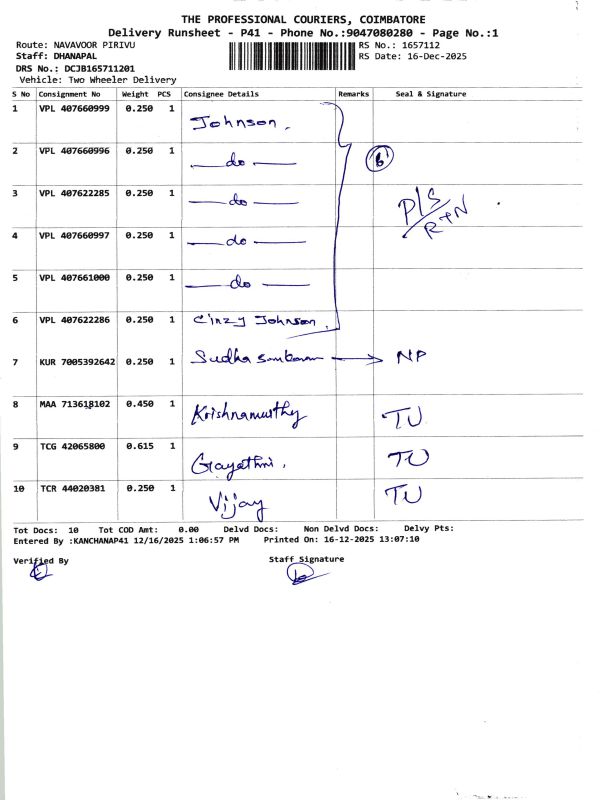 THE PROFESSIONAL COURIERS, COIMBATORE
Delivery Runsheet - P41 - Phone No.:9047080280 - Page No.:1
Route: NAVAVOOR PIRIVU RS No.: 1657112
Staff: DHANAPAL RS Date: 16-Dec-2025
DRS No.: DCJB165711201
Vehicle: Two Wheeler Delivery
S No Consignment No Weight PCS Consignee Details Remarks Seal & Signature
1 VPL 407660999 0.250 1 Johnson.
2 VPL 407660996 0.250 1 — do — 6
3 VPL 407622285 0.250 1 — do — P/S
RTN
4 VPL 407660997 0.250 1 — do —
5 VPL 407661000 0.250 1 — do —
6 VPL 407622286 0.250 1 Cinzy Johnson.
7 KUR 7005392642 0.250 1 Sudha → NP
8 MAA 713618102 0.450 1 Krishnamurthy TU
9 TCG 42065800 0.615 1 Gayathri. TU
10 TCR 44020381 0.250 1 Vijay TU
Tot Docs: 10 Tot COD Amt: 0.00 Delvd Docs: Non Delvd Docs: Delvy Pts:
Entered By :KANCHANAP41 12/16/2025 1:06:57 PM Printed On: 16-12-2025 13:07:10
Verified By Staff Signature